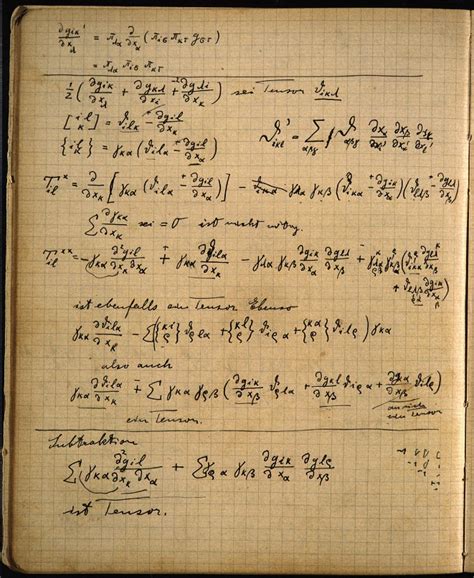 ∂g_{ik}'/∂x_λ' = π_{λα} ∂/∂x_α (π_{iσ} π_{κτ} g_{στ})
= π_{λα} π_{iσ} π_{κτ}
1/2 (∂g_{ik}/∂x_λ + ∂g_{κλ}/∂x_i + ∂g_{λi}/∂x_κ) sei Tensor ϑ_{ikλ}
[i l / k] = ϑ_{ilκ} − ∂g_{il}/∂x_κ
{i l / k} = γ_{κα} (ϑ_{ilα} − ∂g_{il}/∂x_α)
ϑ'_{ikl} = Σ_{αβγ} ϑ_{αβγ} ∂x_α/∂x_i' ∂x_β/∂x_k' ∂x_γ/∂x_l'
T_{il}^x = ∂/∂x_κ [γ_{κα} (ϑ_{ilα} − ∂g_{il}/∂x_α)] − γ_{λα} γ_{κβ} (ϑ_{iκα} − ∂g_{iκ}/∂x_α)(ϑ_{lλβ} − ∂g_{lλ}/∂x_β)
Σ ∂γ_{κα}/∂x_κ sei = 0 ist nicht nötig.
T_{il}^{xx} = −γ_{κα} ∂²g_{il}/∂x_κ∂x_α + γ_{κα} ∂ϑ_{ilα}/∂x_κ − γ_{λα} γ_{κβ} ∂g_{iκ}/∂x_α ∂g_{lλ}/∂x_β
ist ebenfalls ein Tensor Ebenso
γ_{κα} ∂ϑ_{ilα}/∂x_κ − Σ({κ i / ρ} ϑ_{ρlα} + {κ l / ρ} ϑ_{iρα} + {κ α / ρ} ϑ_{ilρ}) γ_{κα}
also auch
γ_{κα} ∂ϑ_{ilα}/∂x_κ + Σ γ_{κα} γ_{ρβ} (∂g_{iκ}/∂x_β ϑ_{ρlα} + ∂g_{κl}/∂x_β ϑ_{iρα} + ∂g_{κα}/∂x_β ϑ_{ilρ})
ein Tensor.
Subtraktion
Σ γ_{κα} ∂²g_{il}/∂x_κ∂x_α + Σ γ_{ρα} γ_{κβ} ∂g_{iκ}/∂x_α ∂g_{lρ}/∂x_β
ist Tensor.